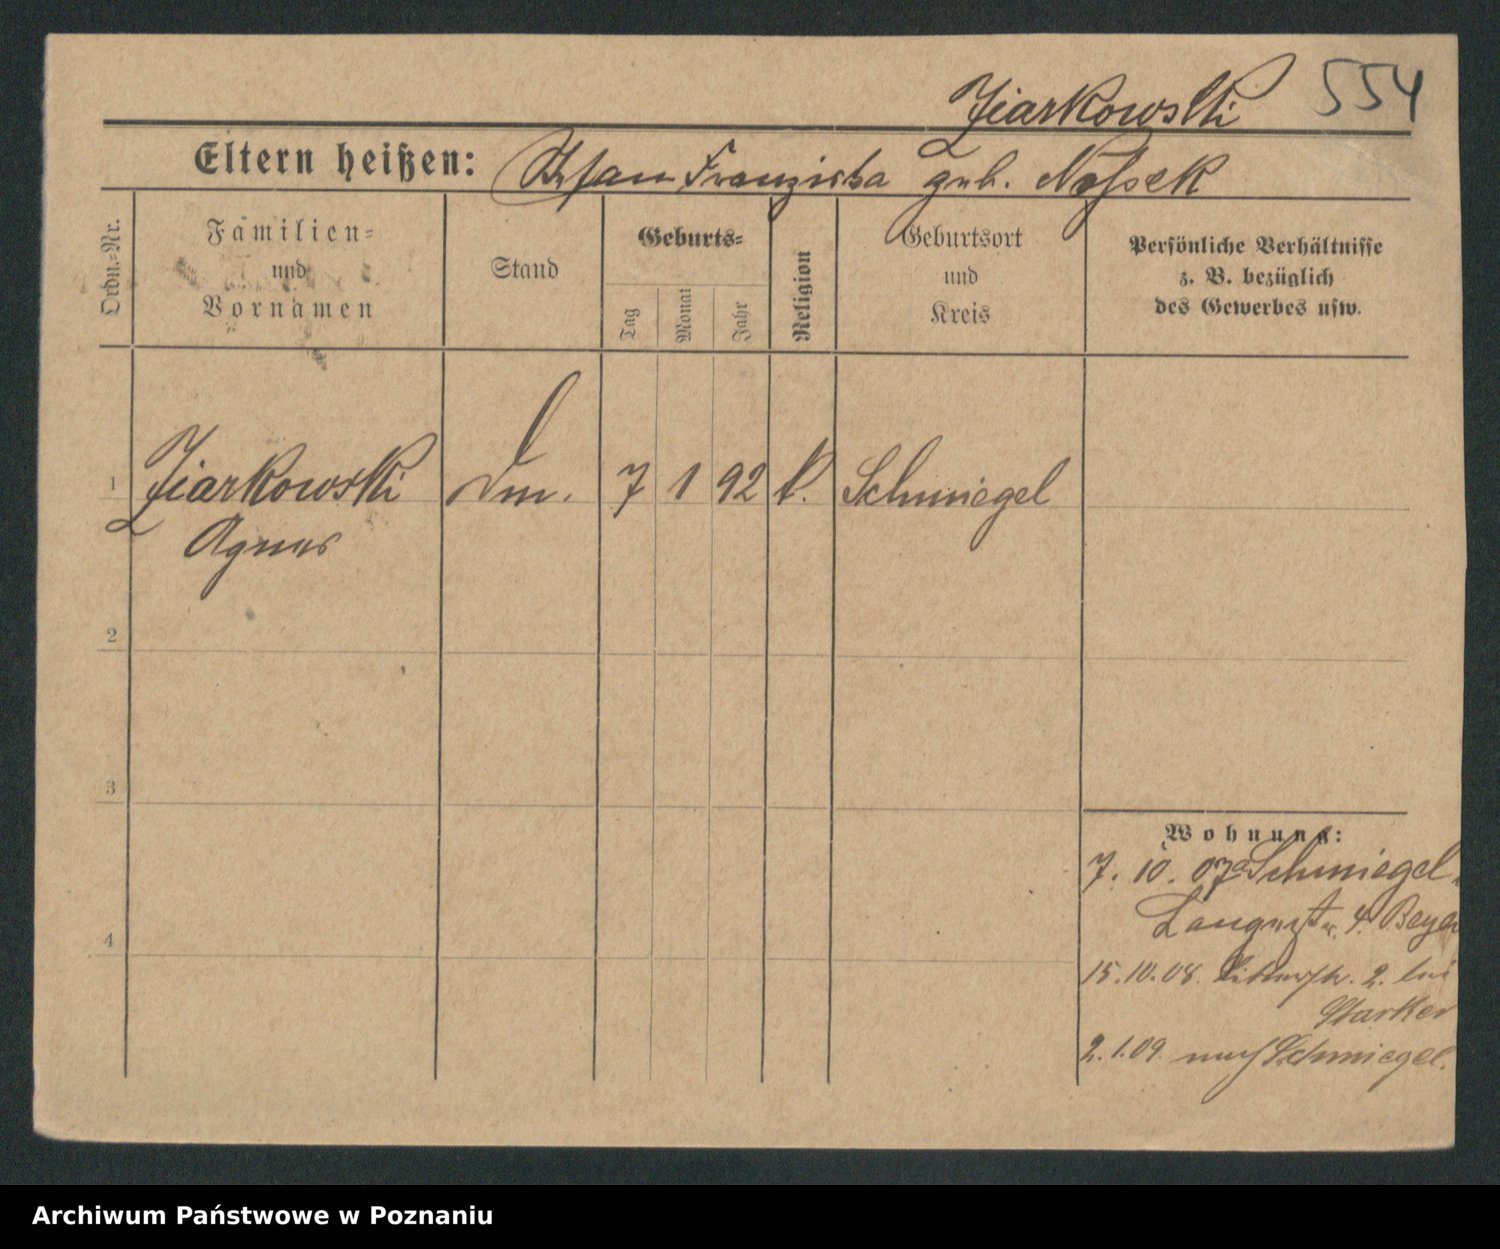 Ziarkowski 554
Eltern heißen: Stefan Franziska geb. Nossek
Ordn.-Nr.
Familien-
und
Vornamen
Stand
Geburts-
Tag
Monat
Jahr
Religion
Geburtsort
und
Kreis
Persönliche Verhältnisse
z. B. bezüglich
des Gewerbes usw.
1 Ziarkowski 7 1 92 k. Schmiegel
Agnes
2
3
4
Wohnung:
7. 10. 07 Schmiegel
Langestr. 4. Beyer
15. 10. 08. 2. bei
Starker
2. 1. 09. nach Schmiegel.
Archiwum Państwowe w Poznaniu